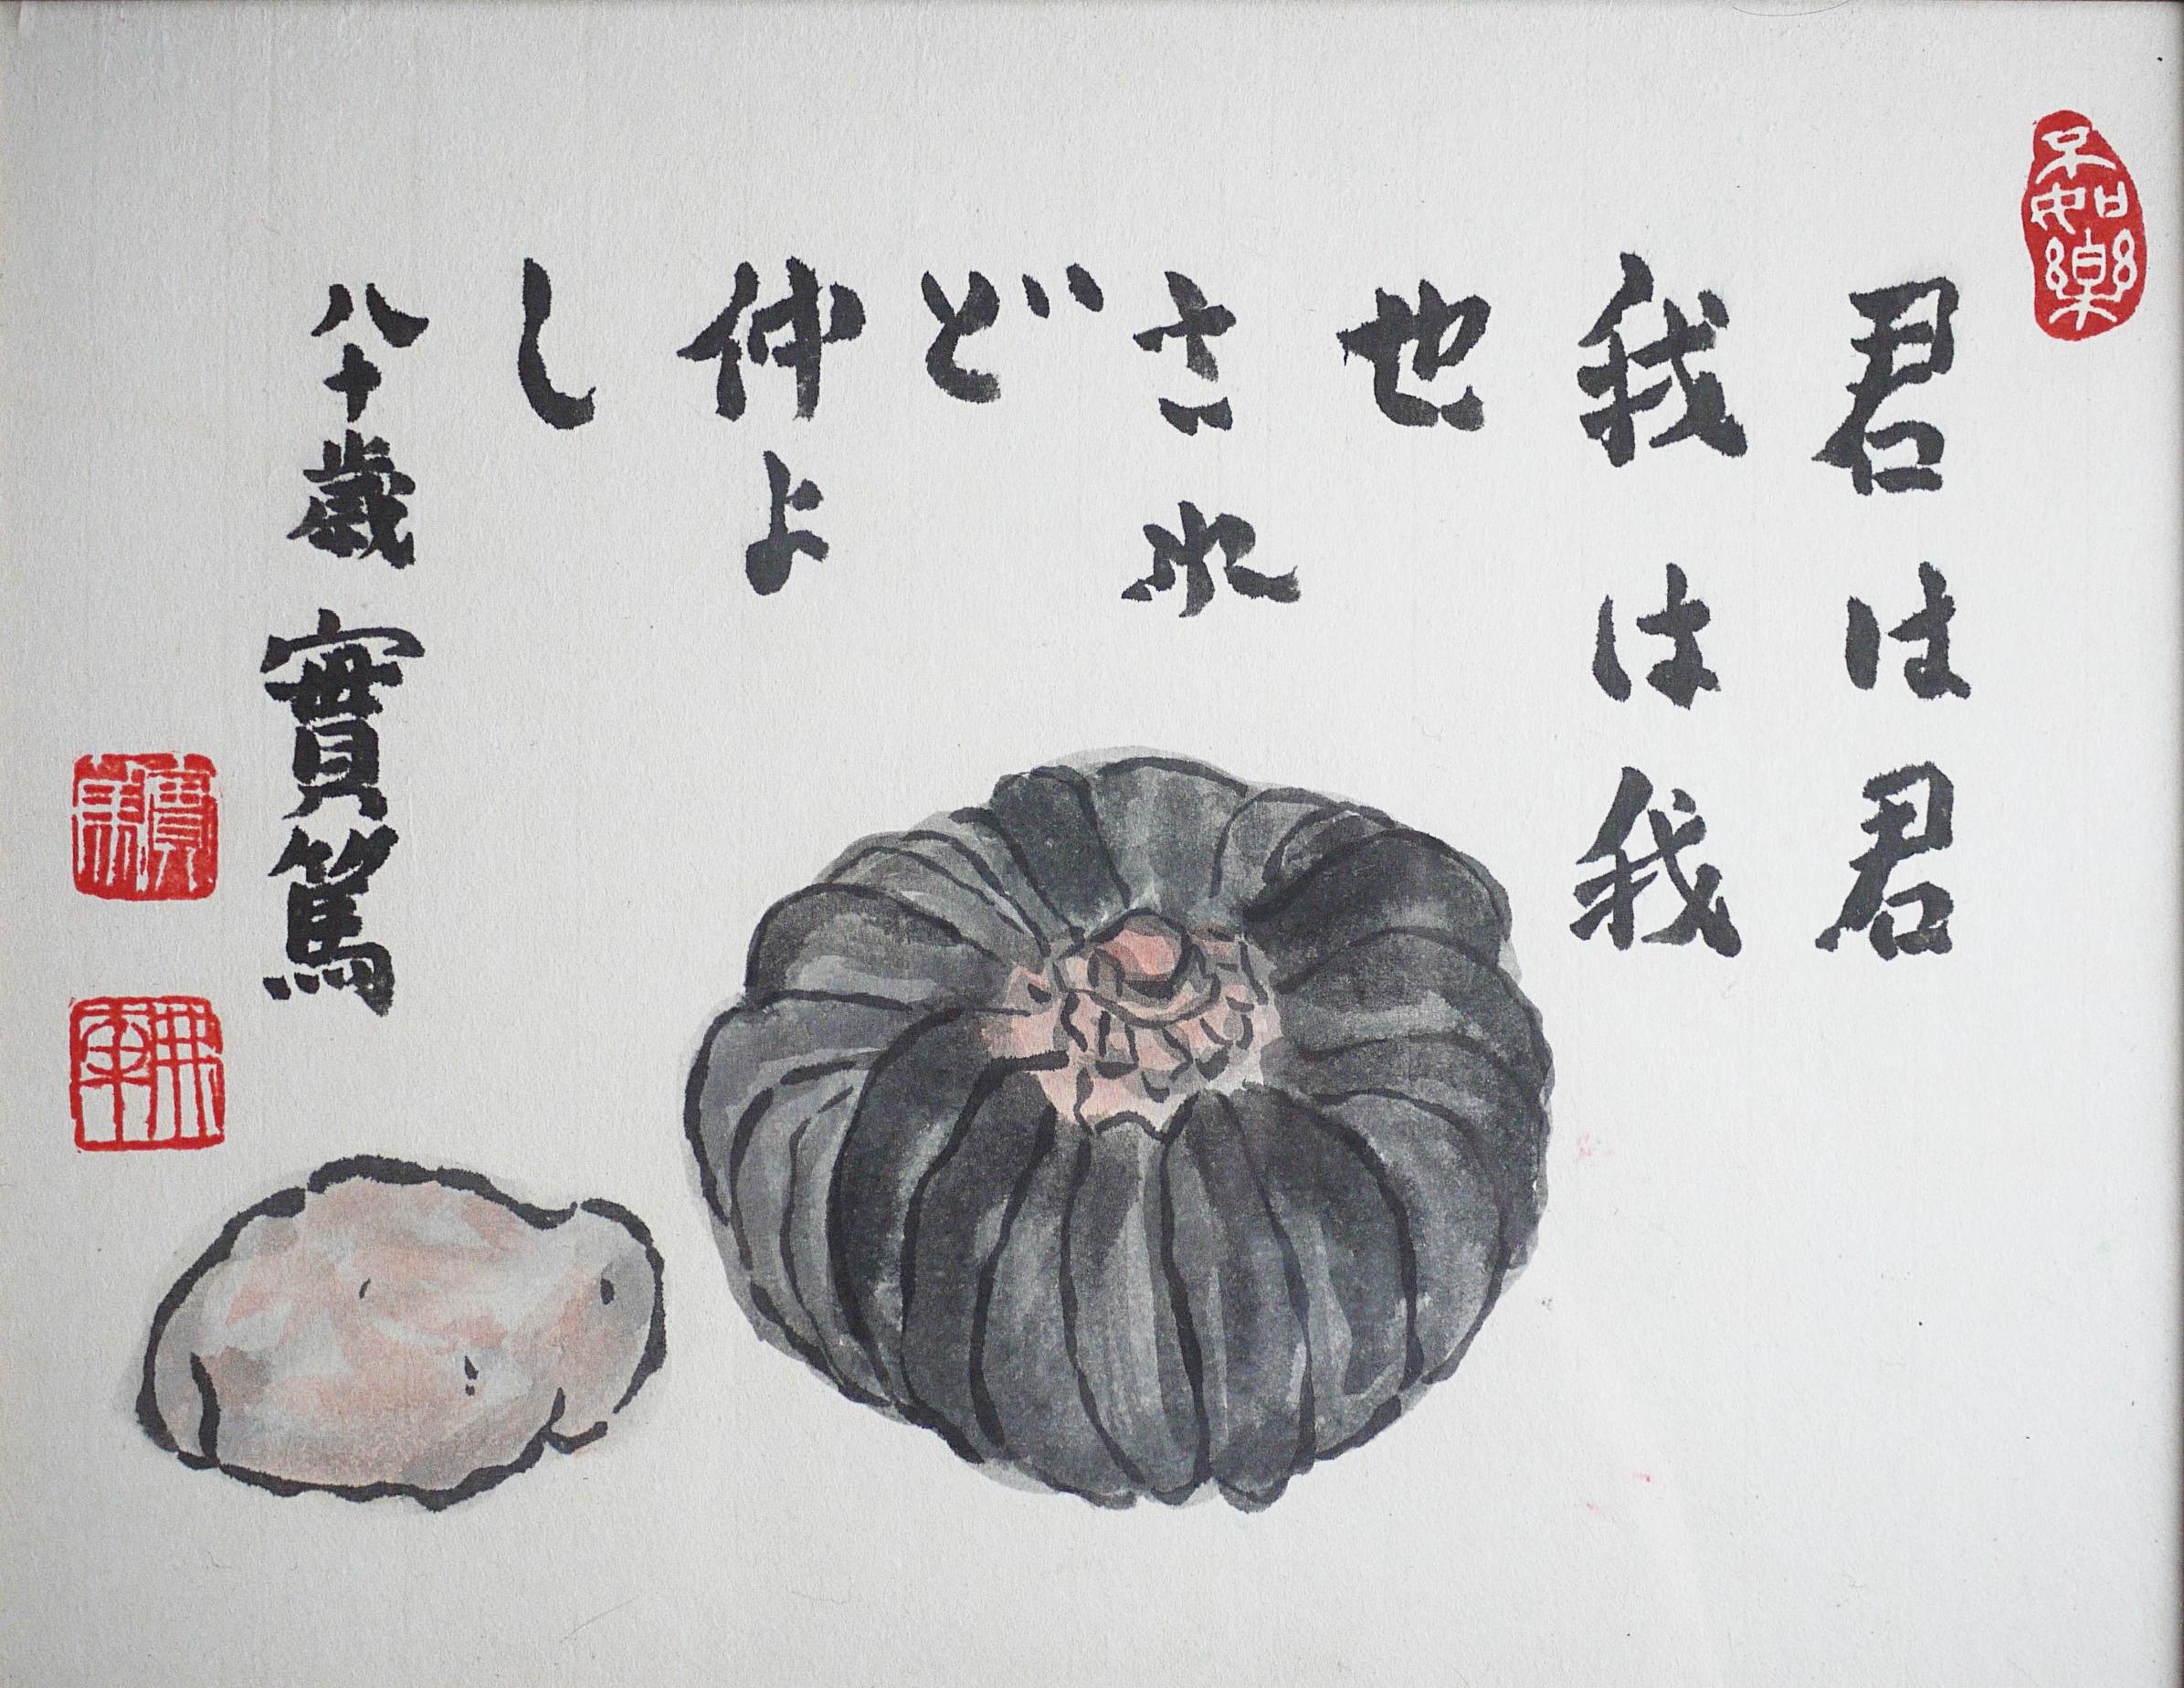 君は君
我は我
也
され
ど
仲よ
し
八十歳 實篤